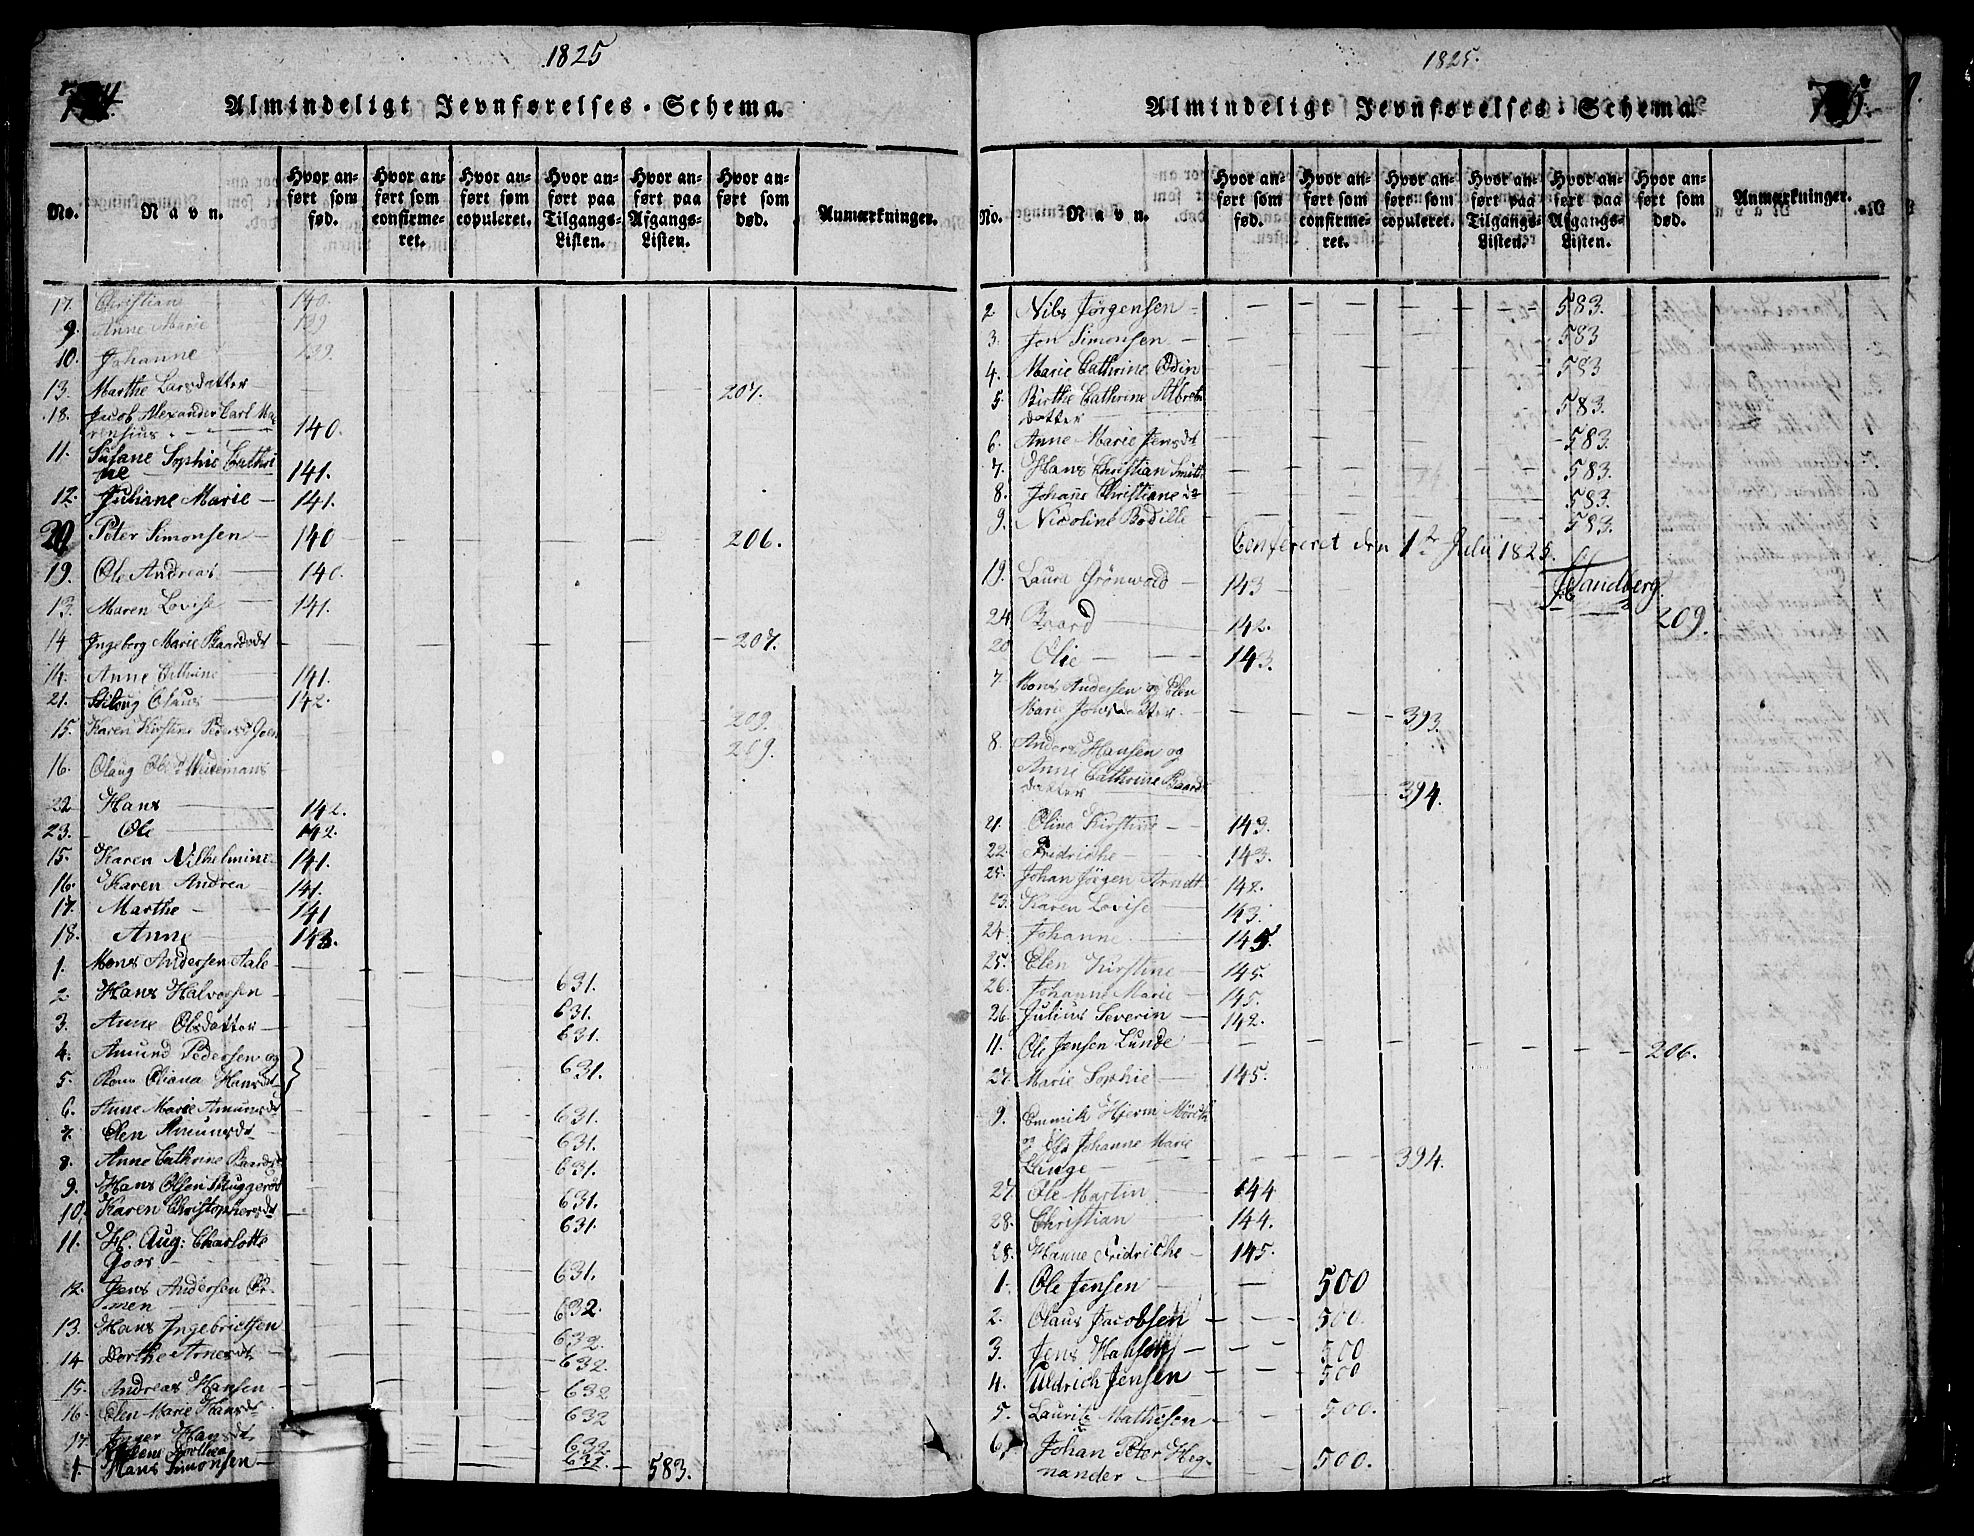 1825
Almindeligt Jevnførelses-Schema.
No.
Navn.
Hvor anført som fød.
Hvor anført som confirmeret.
Hvor anført som copuleret.
Hvor anført paa Tilgangs-Listen.
Hvor anført paa Afgangs-Listen.
Hvor anført som død.
Anmærkninger.
17. Christian 140.
9. Anne Marie 139
10. Johanne 139.
13. Marthe Larsdatter 207.
18. Jacob Alexander Carl Ma-
rensius. 140.
11. Susane Sophie Cathri
ne 141.
12. Juliane Marie 141.
20 Peter Simonsen 140 206.
19. Ole Andreas 140.
13. Maren Lovise 141.
14 Ingeborg Marie Baardsdr 207.
14. Anne Cathrine 141.
21. Olaus 142.
15. Karen Kirstine Pedersd 209.
16. Olaug 209.
22 Hans 142.
23. Ole 142.
15. Karen Vilhelmine 141.
16. Karen Andrea 141.
17. Marthe 141
18. Anne 143.
1. Mons Andersen Aale 631.
2. Hans Halvorsen 631.
3. Anne Olsdatter 631.
4. Amund Pedersen og
5. Kone Eliana Hansdr 631.
6. Anne Marie Amundsdr 631.
7. Elen Amunsdr 631.
8. Anne Cathrine Baardsd 631.
9. Hans Olsen Ruggerød 631.
10. Karen Christophersdr 631.
11. H. Aug: Charlotte
Goos 631.
12. Jens Andersen
men 632.
13. Hans Ingebrictsen 632.
14 Dorthe Arnesdr 632.
15. Andreas Hansen 632
16. Elen Marie Hansdr 632
17. Inger Hansdr 632.
Dorthea 632.
1. Hans Simonsen 583.
1825.
Almindeligt Jevnførelses-Schema.
No.
Navn.
Hvor anført som fød.
Hvor anført som confirmeret.
Hvor anført som copuleret.
Hvor anført paa Tilgangs-Listen.
Hvor anført paa Afgangs-Listen.
Hvor anført som død.
Anmærkninger.
2 Nils Jørgensen 583.
3. Jon Simonsen 583
4. Marie Cathrine Odin 583
5. Birthe Cathrine Albrets
datter 583.
6. Anne Marie Jensdr 583.
7. Hans Christian Smitt 583.
8. Johane Christiane 583.
9. Nicoline Bodille 583.
Confereret den 1te Julii 1825.
Sandberg
19. Laura Grönvold 143
24. Baard 142. 209.
20 Olie 143.
7. Mons Andersen og Elen
Marie Jonsdatter 393.
8. Anders Hansen og
Anne Cathrine Baards
datter 394.
21. Oline Kirstine 143.
22. Fredriche 143.
25. Johan Jörgen Arndt 142.
23. Karen Lovise 143.
24. Johanne 145.
25. Elen Kirstine 145.
26. Johanne Marie 145.
26. Julius Severin 142.
11. Ole Jensen Lunde 206.
27. Marie Sophie 145.
9. Emmik Hjerm
og Johanne Marie
394.
27. Ole Martin 144
28. Christian 144.
28. Hanne Fridriche 145.
1. Ole Jensen 500
2. Olaus Jacobsen 500.
3. Jens Hansen 500
4. Uldrich Jensen 500
5. Lauritz Mathisen 500.
6. Johan Peter Heg-
nander 500.